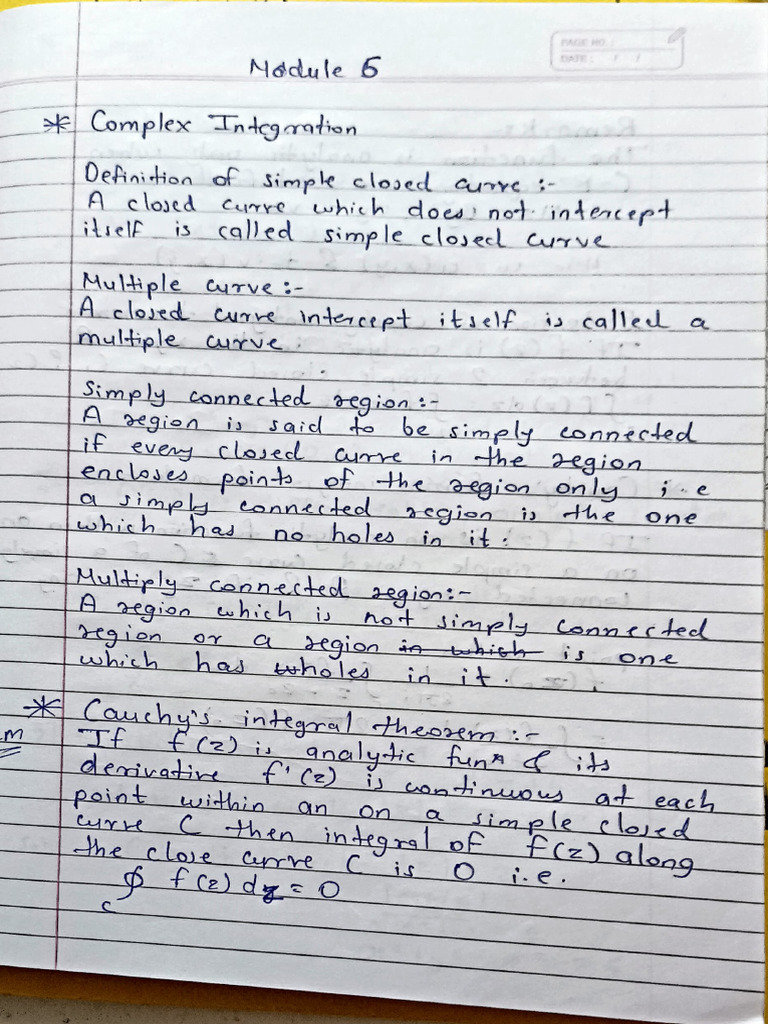 PAGE NO.:
DATE: / /
Module 5
* Complex Integration
Definition of simple closed curve :-
A closed curve which does not intercept
itself is called simple closed curve
Multiple curve :-
A closed curve intercept itself is called a
multiple curve.
Simply connected region :-
A region is said to be simply connected
if every closed curve in the region
encloses points of the region only i.e
a simply connected region is the one
which has no holes in it.
Multiply connected region :-
A region which is not simply connected
region or a region in which is one
which has wholes in it.
* Cauchy's integral theorem :-
If f(z) is analytic funⁿ & its
derivative f'(z) is continuous at each
point within an on a simple closed
curve C then integral of f(z) along
the close curve C is 0 i.e.
∮ f(z) dz = 0
c